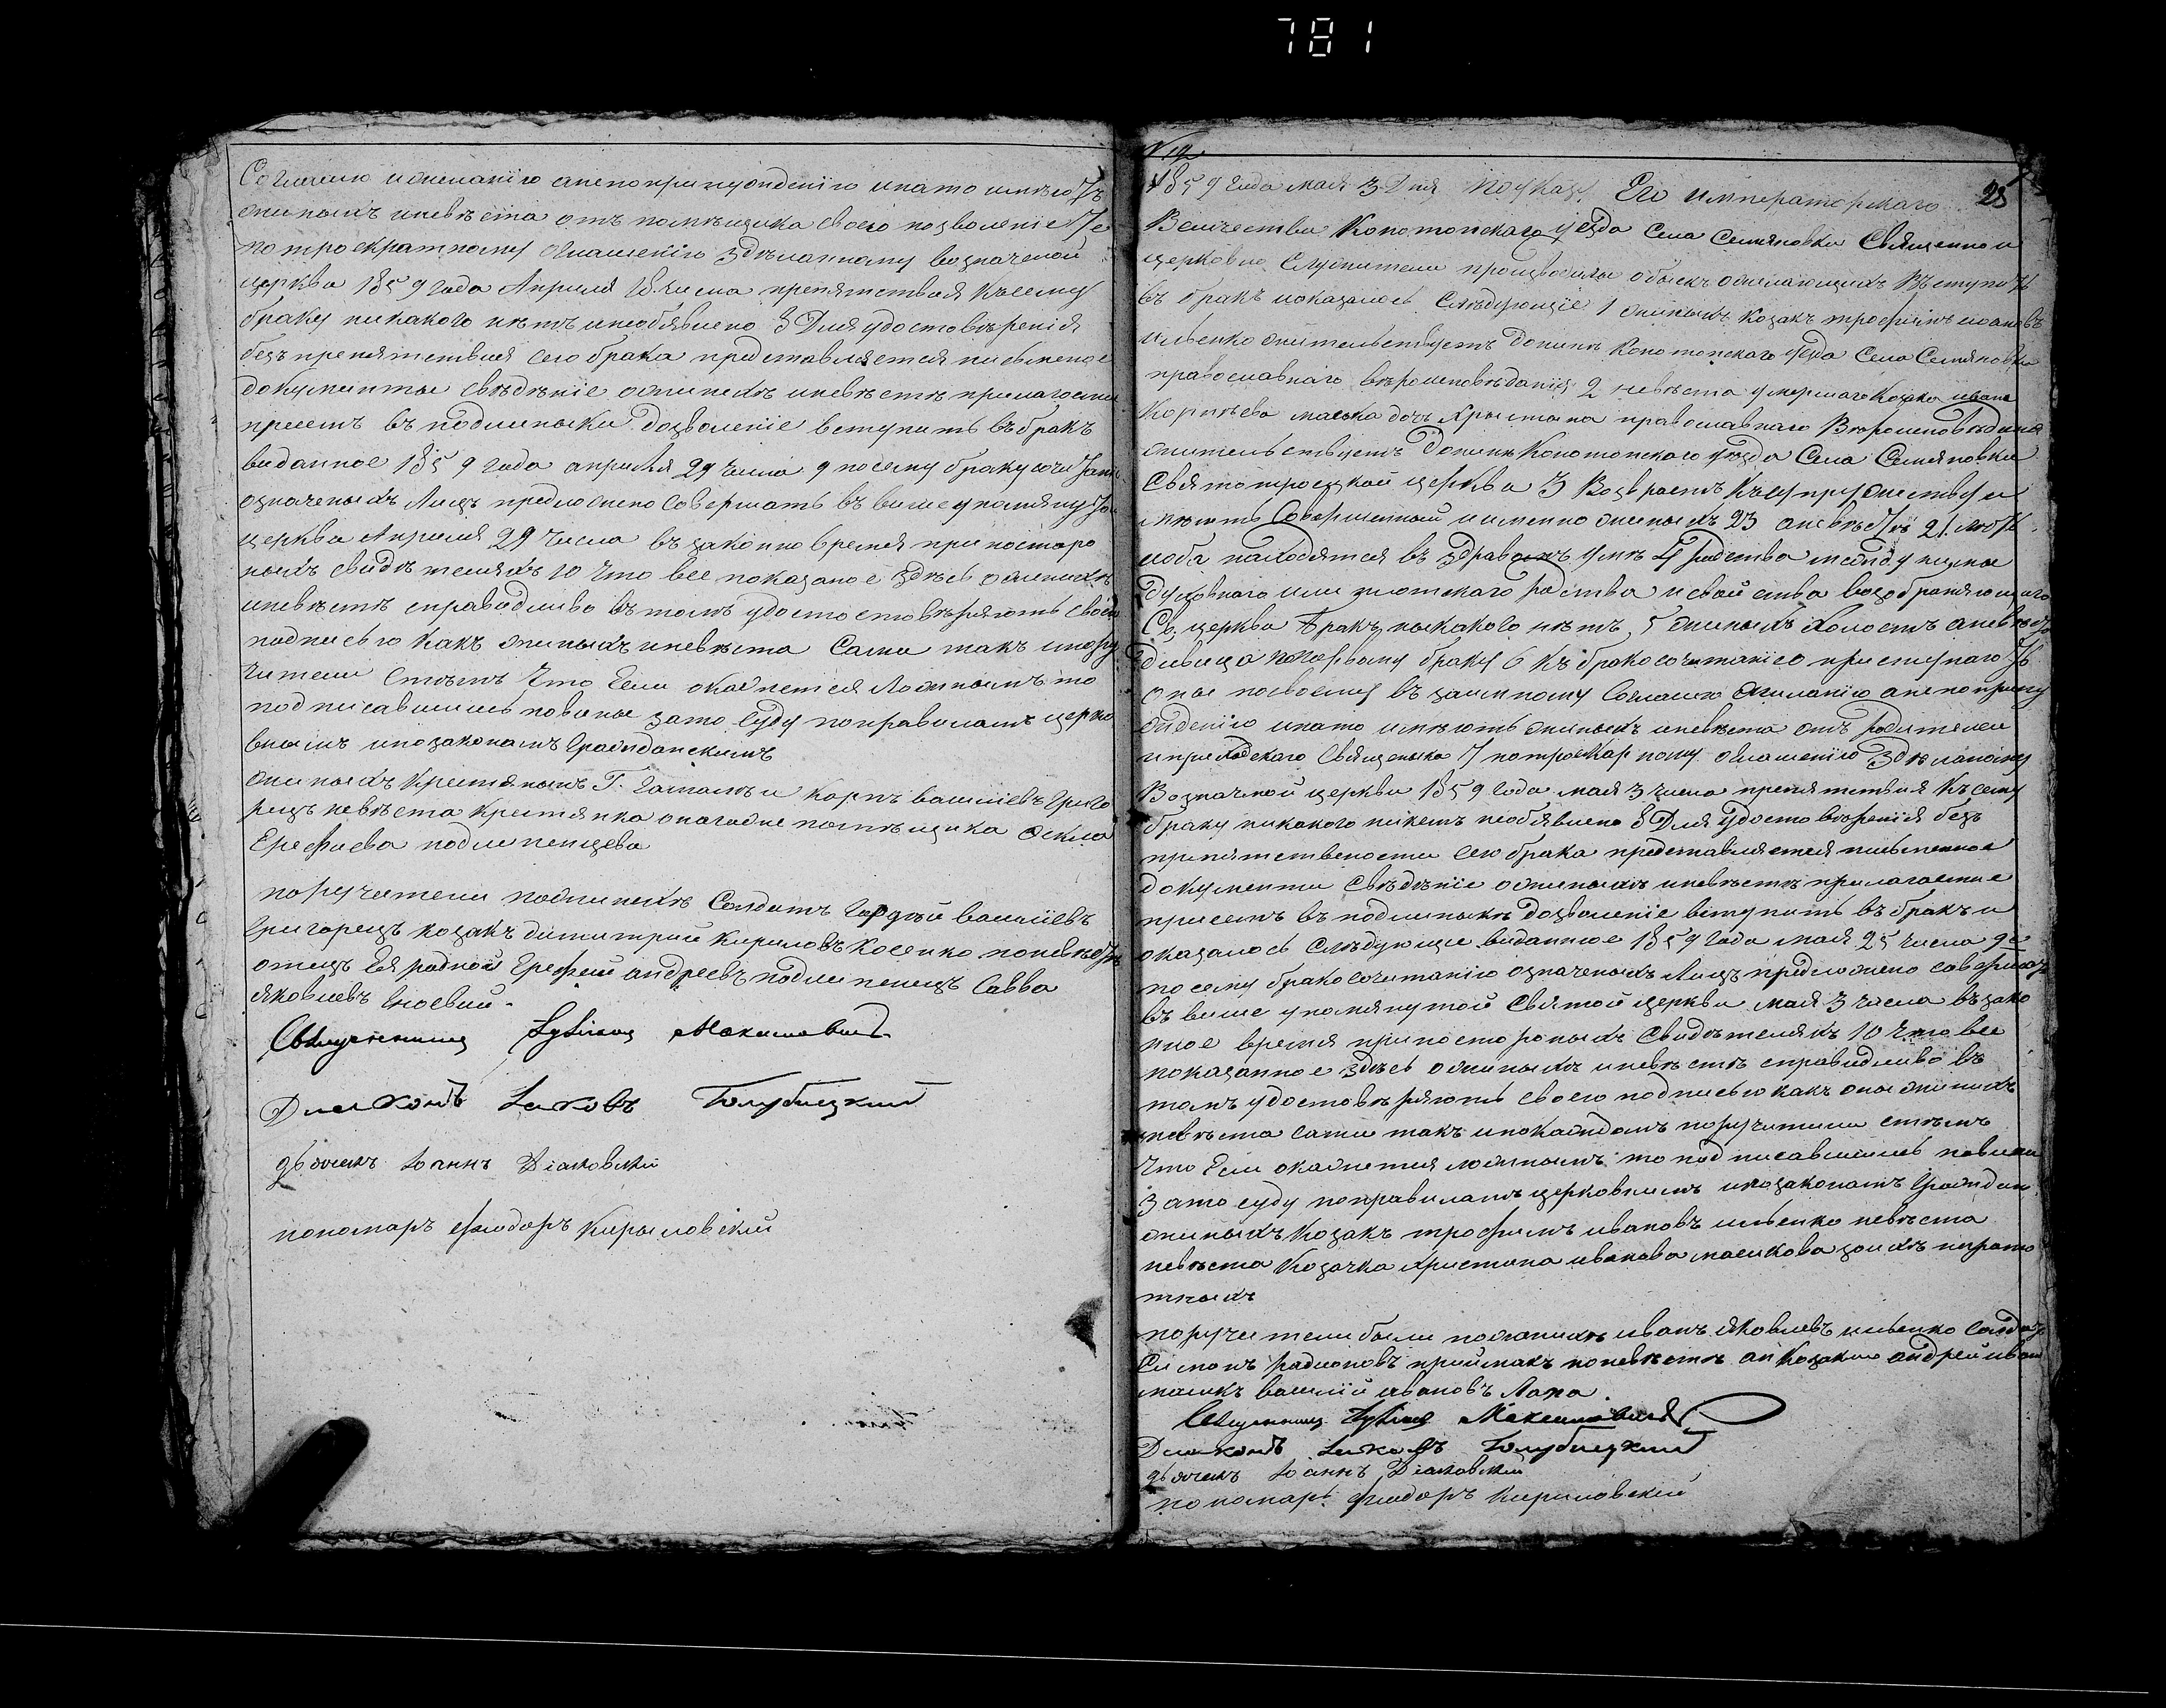 781
Согласию и желанію а непопринужденію и на то имѣютъ
женыхъ и невѣста отъ помѣщика своего позволеніе 7е
по троекратному оглашенію здѣланному вознаженой
церкви 1859 года Апреля числа препятствия къ сему
браку никакого нѣтъ и необявлено 8 Для удостовѣренія
безъ препятствия сего брака представляется письменое
документы свѣдѣніе о женихѣ и невѣстѣ прилагаеми
присемъ въ подлиныки дозволеніе вступить въ бракъ
виданное 1859 года апреля 29 числа 9 по сему браку сочитанію
означеныхъ Лицъ предложено совершать въ вишеупомянутой
церкви Апреля 29 числа въ законно время при посторо
ныхъ свидѣтеляхъ 10 Что все показаное здѣсь о женихѣ
и невѣстѣ справидливо въ томъ удостостовѣряютъ своею
подписью какъ женыхъ и невѣста сами такъ и пору
чители стѣмъ что Если окажется Ложнымъ то
подписавшиись повины зато Суду по правиламъ церко
внымъ и по законамъ Гражданскимъ
женыхъ Крестянынъ Г. Карпъ васиіевъ Григо
рецъ невѣста Крестянка оногожде помѣщика Фекла
Ерефиева подлипенцева
поручители поженихѣ Солдатъ Гордѣй васиіевъ
Григорецъ козакъ димитрий Кириловъ Косенко по невѣстѣ
отецъ Ея родной Ерефей андреевъ подлипенецъ Савва
яковлевъ Еноевий.
Священникъ Максимовичъ
Диаконъ Іаковъ Голубицкий
дьячекъ Іоаннъ Діаковскій
пономаръ феодоръ Кирыловскій
N 19
1859 года мая 3 Дня По указу Его императорскаго 25
Величества Конотопскаго уезда Села Семяновки Священно и
церковно Служители производили обыскъ ожелающихъ Вступить
въ бракъ и оказалось Слѣдующіе 1 женыхъ Козакъ трофимъ ивановъ
ильенко жительствуетъ донынѣ Конотопского уезда Села Семяновки
православнаго вѣроисповѣданія 2 невѣста умершаго Козака ивана
Корнѣева дочь Христина православнаго Вѣроисповѣданія
жительствуетъ донынѣ Конотопского уезда Села Семяновки
Святотроецкой церкви 3 Возврастъ Къ супружеству и
имѣютъ Совершенный и именно женыхъ 23 а невѣста 21 лѣтъ
иоба находятся въ здравомъ умѣ 4 Родства между ними
Духовнаго или плотскаго роства и свойства возобраняющаго
Св. церкви бракъ ныкакого нѣтъ 5 женыхъ холостъ а невѣста
дивица поПервому браку 6 Къ бракосочитанію приступаютъ
оны по своему взаимному Согласию и желанію а не по прину
жденію и на то имѣютъ женыхъ и невѣста отъ родителей
и приходского Священыка 7 по троекратному оглашению Здѣланому
Вознажной церкви 1859 года мая 3 числа препятствия Къ сему
браку никакого нитъ необявлено 8 Для удостовѣренія безъ
припятствености сего брака представляется письменное
документи свѣдѣніе о женыхѣ и невѣстѣ прилагаемие
присемъ въ подлиныкѣ дозволеніе вступить въ бракъ и
оказалось слѣдующие виданное 1859 года мая 25 числа 9е
по сему бракосочитанію означеныхъ Лицъ предложено совершать
въ вишеупомянутой Святой церкви мая 3 числа въ зако
нное время при посторонныхъ Свидѣтеляхъ 10 Что все
показанное здѣсь о женыхѣ и невѣстѣ справидливо въ
томъ удостовѣряютъ своею подписью какъ оны женыхъ
невѣста сами такъ и по каждомъ поручители стѣмъ
Что Если окажется ложнымъ то подписавшиись повины
Зато суду по правиламъ церковнымъ и по законамъ Граждан
женыхъ Козакъ трофимъ ивановъ ильенко невѣста
невѣста Козачка Христина иванова масикова зоихъ неграмо
тныхъ
поручители были поженихѣ иванъ яковлевъ ильенко Солдатъ
Симонъ радионовъ приймакъ по невѣстѣ Козаки андрей иван
василій ивановъ Лапа
Священникъ Максимовичъ
Диаконъ Іаковъ Голубицкий
дьячекъ Іоаннъ Діаковскій
пономарь феодоръ Кириловский